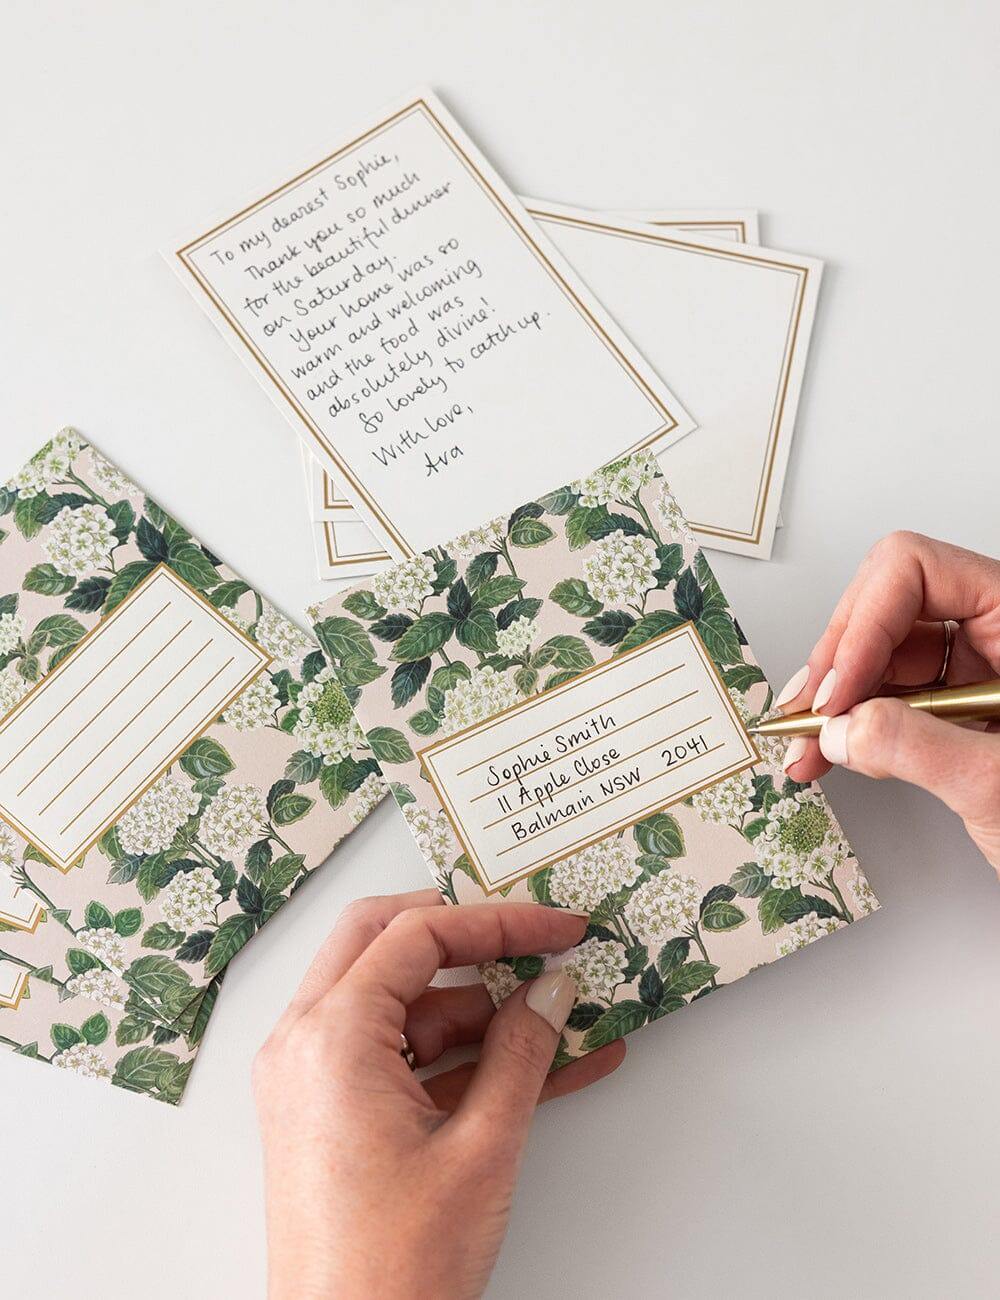 To my dearest Sophie,
Thank you so much
for the beautiful dinner
on Saturday.
Your home was so
warm and welcoming
and the food was
absolutely divine!
So lovely to catch up.
With love,
Ava
Sophie Smith
11 Apple Close
Balmain NSW 2041